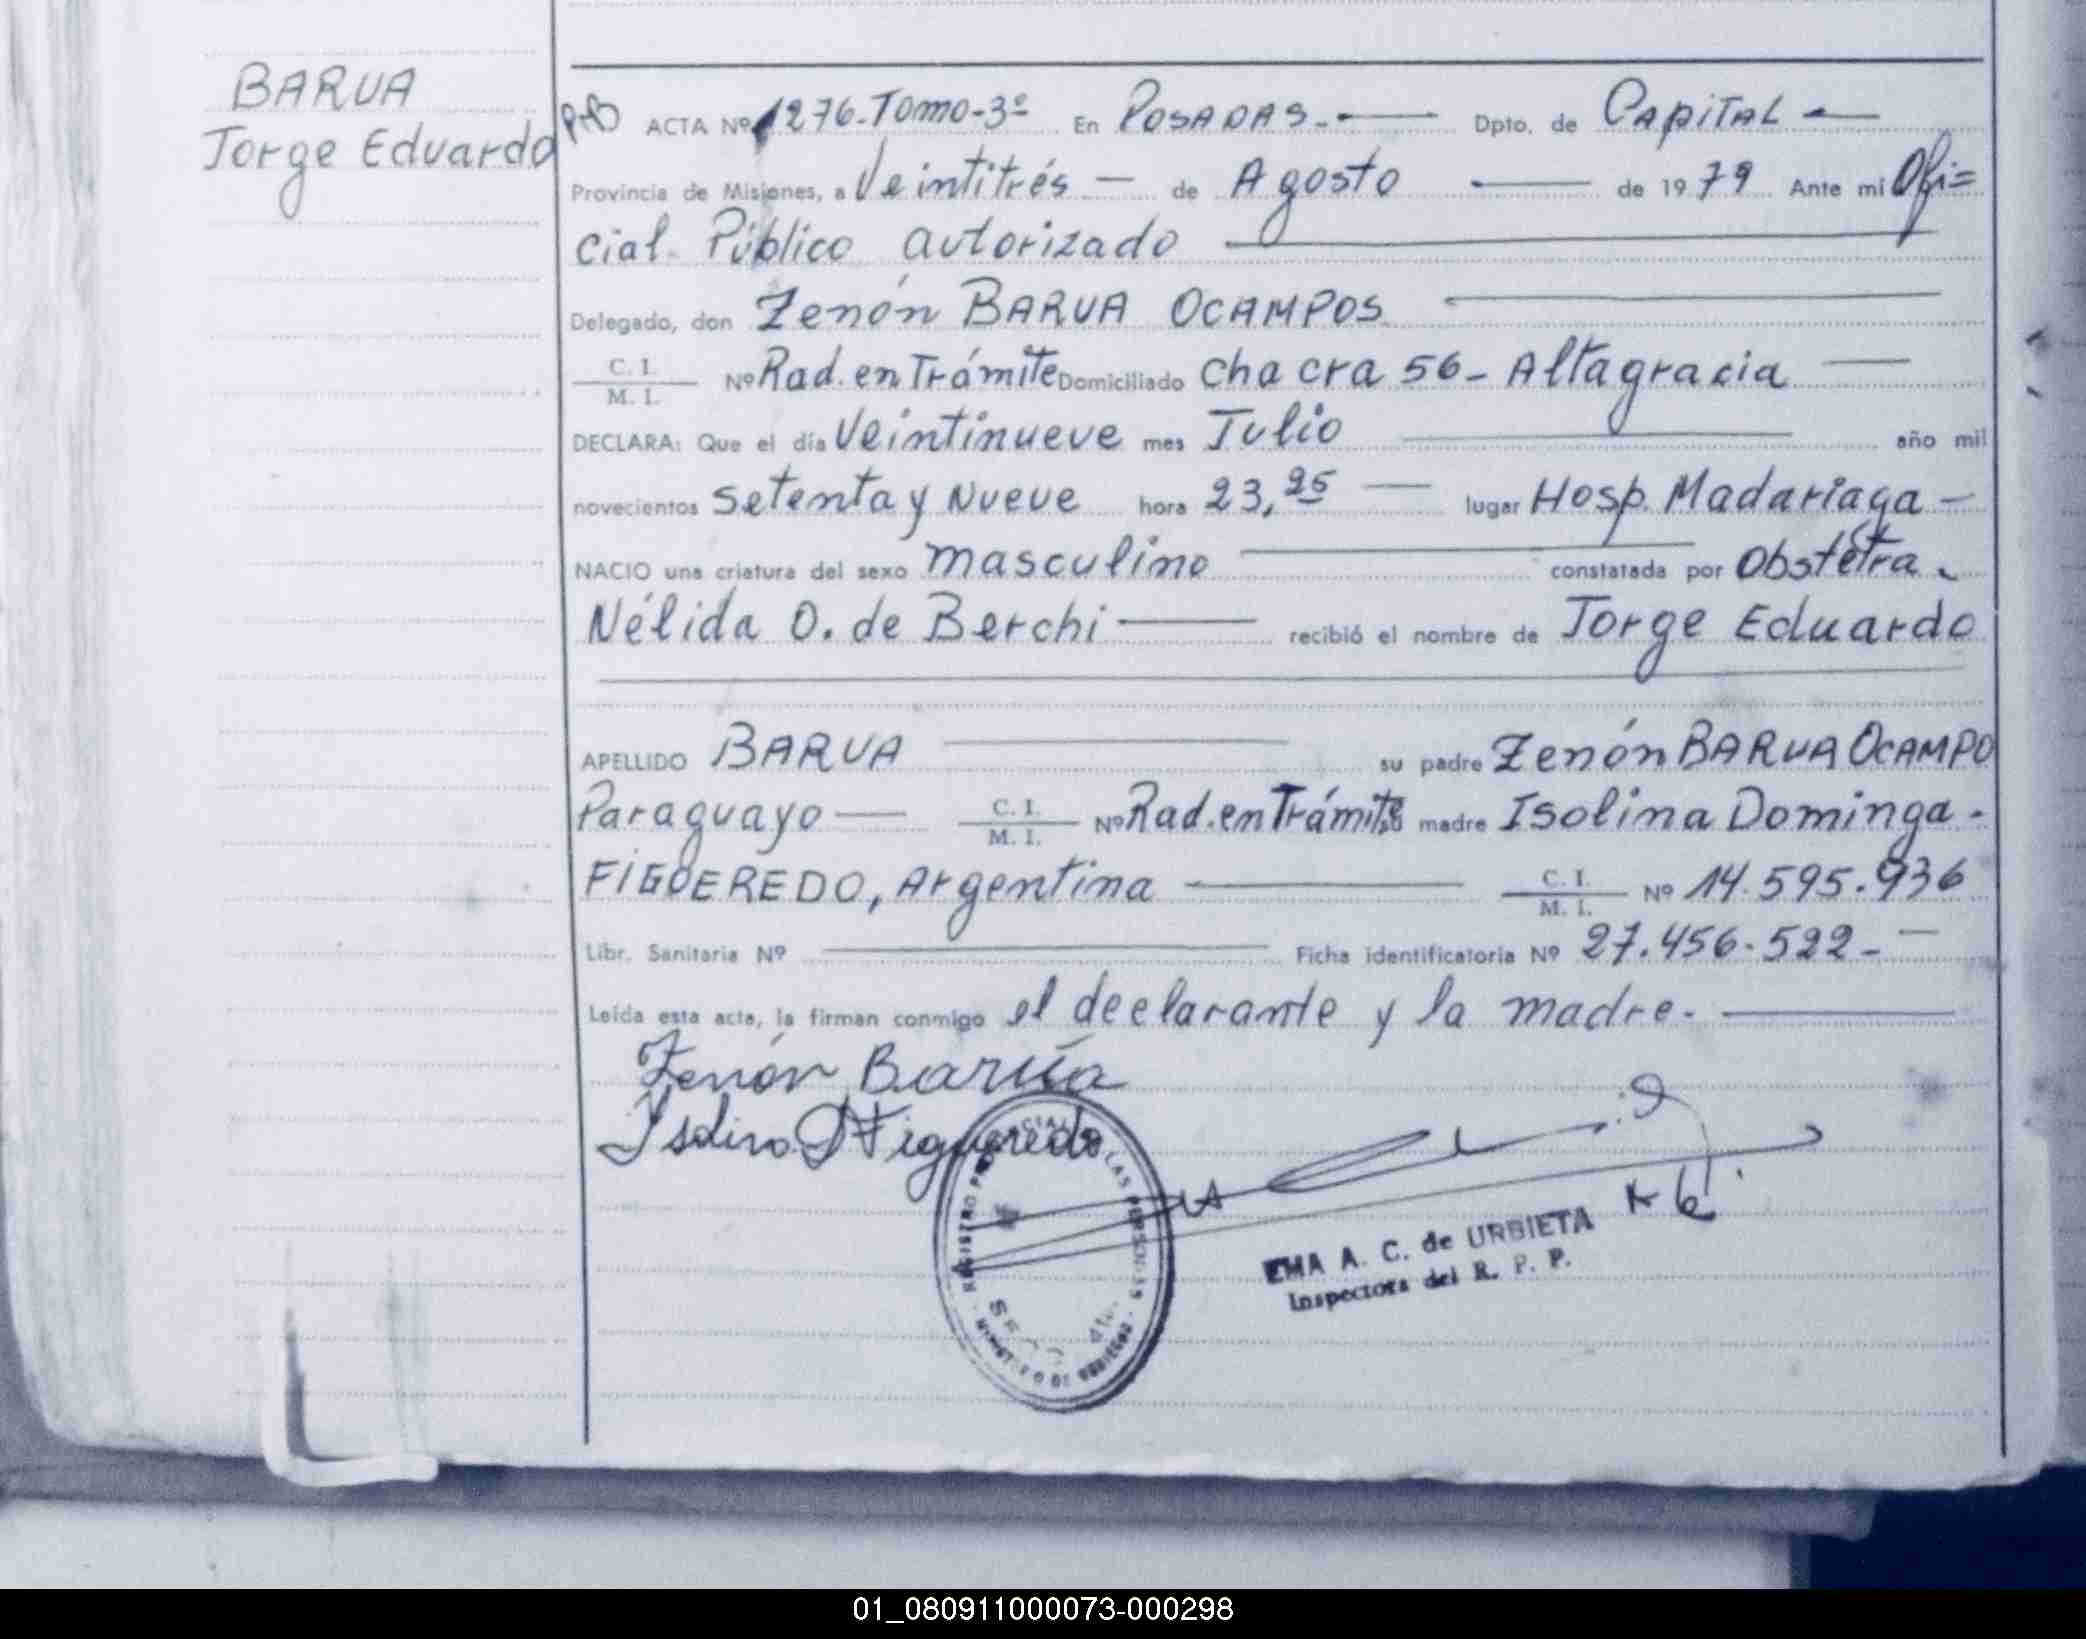 BARUA
Jorge Eduardo
ACTA Nº 1276-Tomo-3º En POSADAS.- Dpto. de CAPITAL
Provincia de Misiones, a Veintitrés de Agosto de 1979 Ante mí Ofi=
cial Público autorizado
Delegado, don Zenón BARUA OCAMPOS
C. I.
M. I. Nº Rad. en Trámite Domiciliado Chacra 56- Altagracia
DECLARA: Que el día Veintinueve mes Julio año mil
novecientos Setenta y Nueve hora 23,25 lugar Hosp. Madariaga -
NACIO una criatura del sexo masculino constatada por Obstétra
Nélida O. de Berchi recibió el nombre de Jorge Eduardo
APELLIDO BARUA su padre Zenón BARUA OCAMPO
Paraguayo C. I.
M. I. Nº Rad. en Trámite madre Isolina Dominga -
FIGUEREDO, Argentina C. I.
M. I. Nº 14.595.936
Libr. Sanitaria Nº Ficha identificatoria Nº 27.456.522-
Leída esta acta, la firman conmigo el declarante y la madre.
Zenón Barúa
Isolina D Figueredo
REGISTRO PROVINCIAL DE LAS PERSONAS
MINISTERIO DE GOBIERNO
EMA A. C. de URBIETA
Inspectora del R. P. P.
01_080911000073-000298